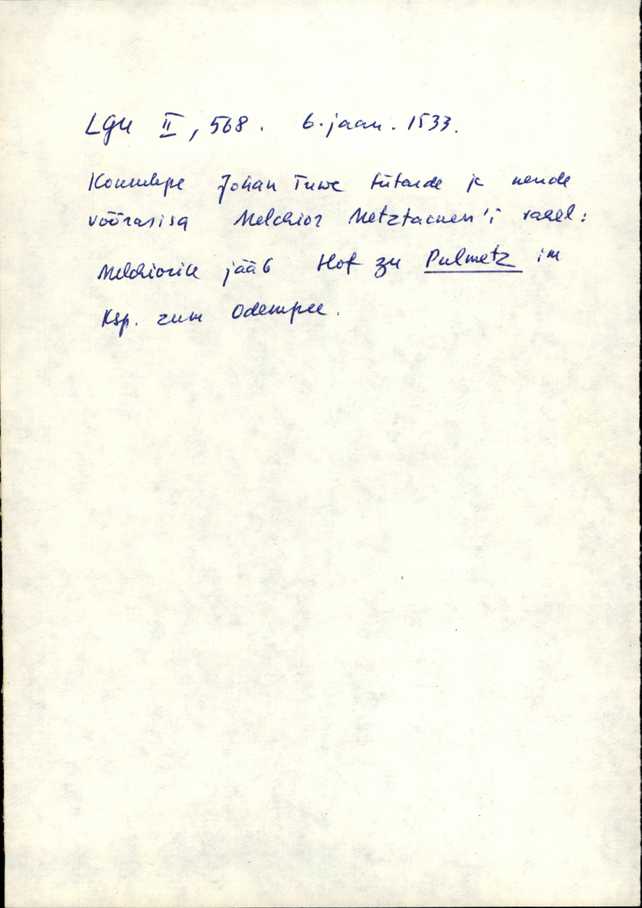 LGU II, 568. 6. jaan. 1533.
Kokkulepe Johan Tuwe tütarde ja nende
võõrasisa Melchior Metztacken'i vahel:
Melchiorile jääb Hof zu Pulmetz im
Ksp. zum Odempee.